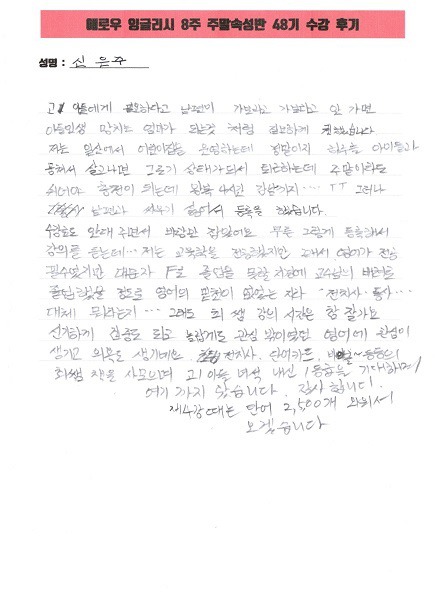 애로우 잉글리시 8주 주말속성반 48기 수강 후기
성명 : 신은주
고1 아들에게 필요하다고 남편이 가보라고 가보라고 안 가면
아들인생 망치는 엄마가 되는것 처럼 집요하게
저는 일산에서 어린이집을 운영하는데 평일이지 하루종 아이들과
공해서 살고나면 그로기 상태가되서 퇴근하는데 주말이라도
쉬어야 충전이 되는데 왕복 4시간 강남까지… ㅜㅜ 그러나
남편과 싸우기 싫어서 등록을 했습니다.
수강료도 안대 주면서 바람만 잡았어요 무튼 그렇게 등록해서
강의를 듣는데… 저는 교육학을 전공했지만 교내서 영어가 전공
필수였지만 대문자 F로 졸업을 못할 지경에 교수님의 배려로
졸업했을 정도로 영어의 밑천이 없었는 자라 "전치사·동사…
대체 뭐라는지… 그래도 최쌤 강의 시작은 항 잘가요
신기하게 전율도 되고 놀랍게도 관심 밖이었던 영어에 관심이
생기고 의욕도 생기네요. 전치사. 단어카드, 바이블~등등의
최쌤 책을 사모으며 고1아들 녀석 내신 1등급을 기대하며
여기 까지 왔습니다. 감사합니다.
재수강때는 단어 2,500개 외워서
오겠습니다